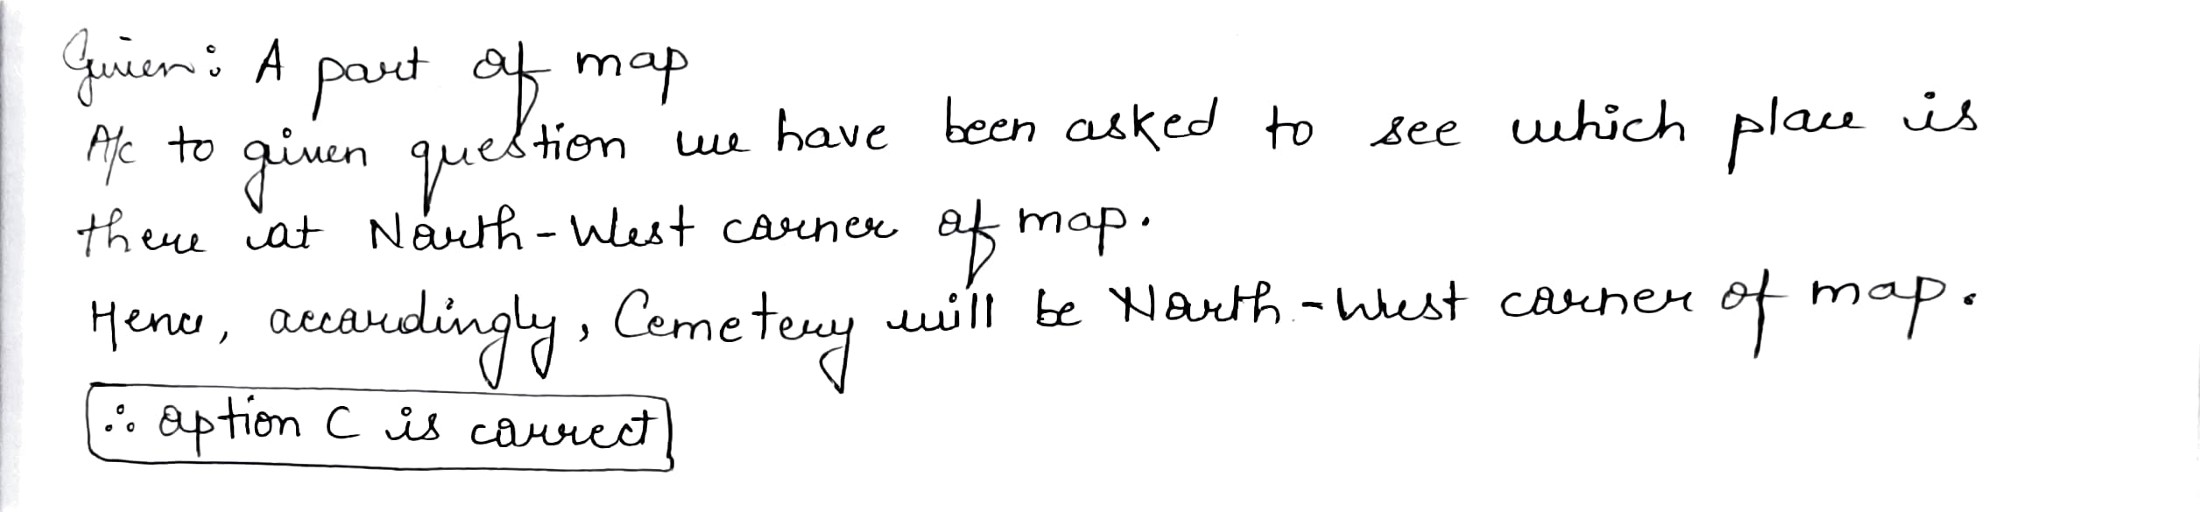 Given: A part of map
A/c to given question we have been asked to see which place is
there at North-West corner of map.
Hence, accordingly, Cemetery will be North-West corner of map.
∴ option C is correct